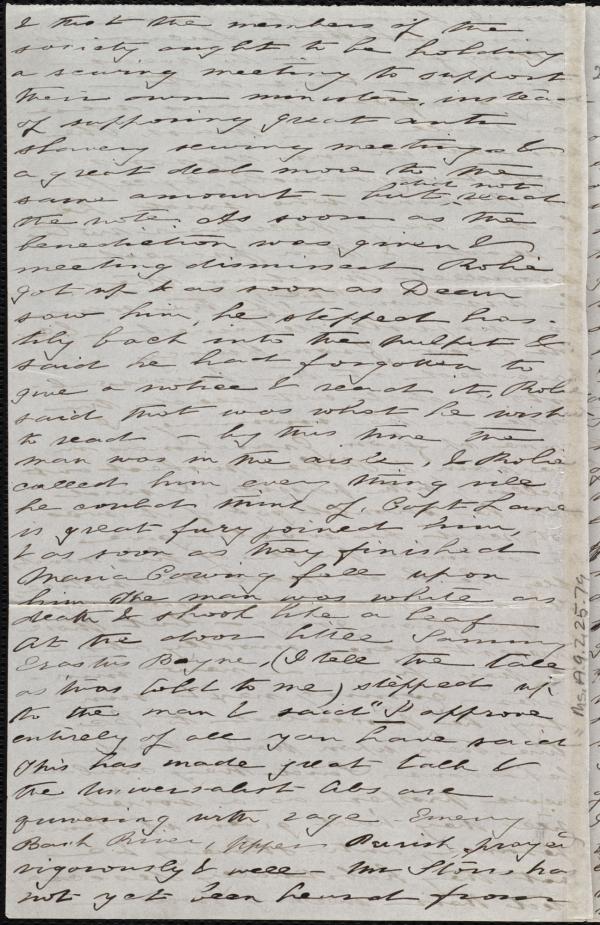 & that the members of the
society ought to be holding
a sewing meeting to support
their own minister, instead
of supporing great anti
slavery sewing meetings &
a great deal more to the
same amount - but did not read
the note. As soon as the
benediction was given &
meeting dismissed Robie
got up & as soon as Dean
saw him, he stepped has-
tily back into the pulpit &
said he had forgotten to
give a notice & read it, Robie
said that was what he wish
to read - by this time the
man was in the aisle, & Robie
called him every thing vile
he could think of, Capt Lane
in great fury joined him,
& as soon as they finished
Maria Cowing fell upon
him the man was white as
death & shook like a leaf
At the door little Sammy
Erastus Bayne, (I tell the tale
as 'twas told to me) stepped up
to the man & said "I approve
entirely of all you have said
This has made great talk &
the Universalist Abs are
quivering with rage - Emery
Back River, Upper Parish, prayed
vigorously & well - Mr Stone has
not yet been heard from
Ms. A.9.2.25.79